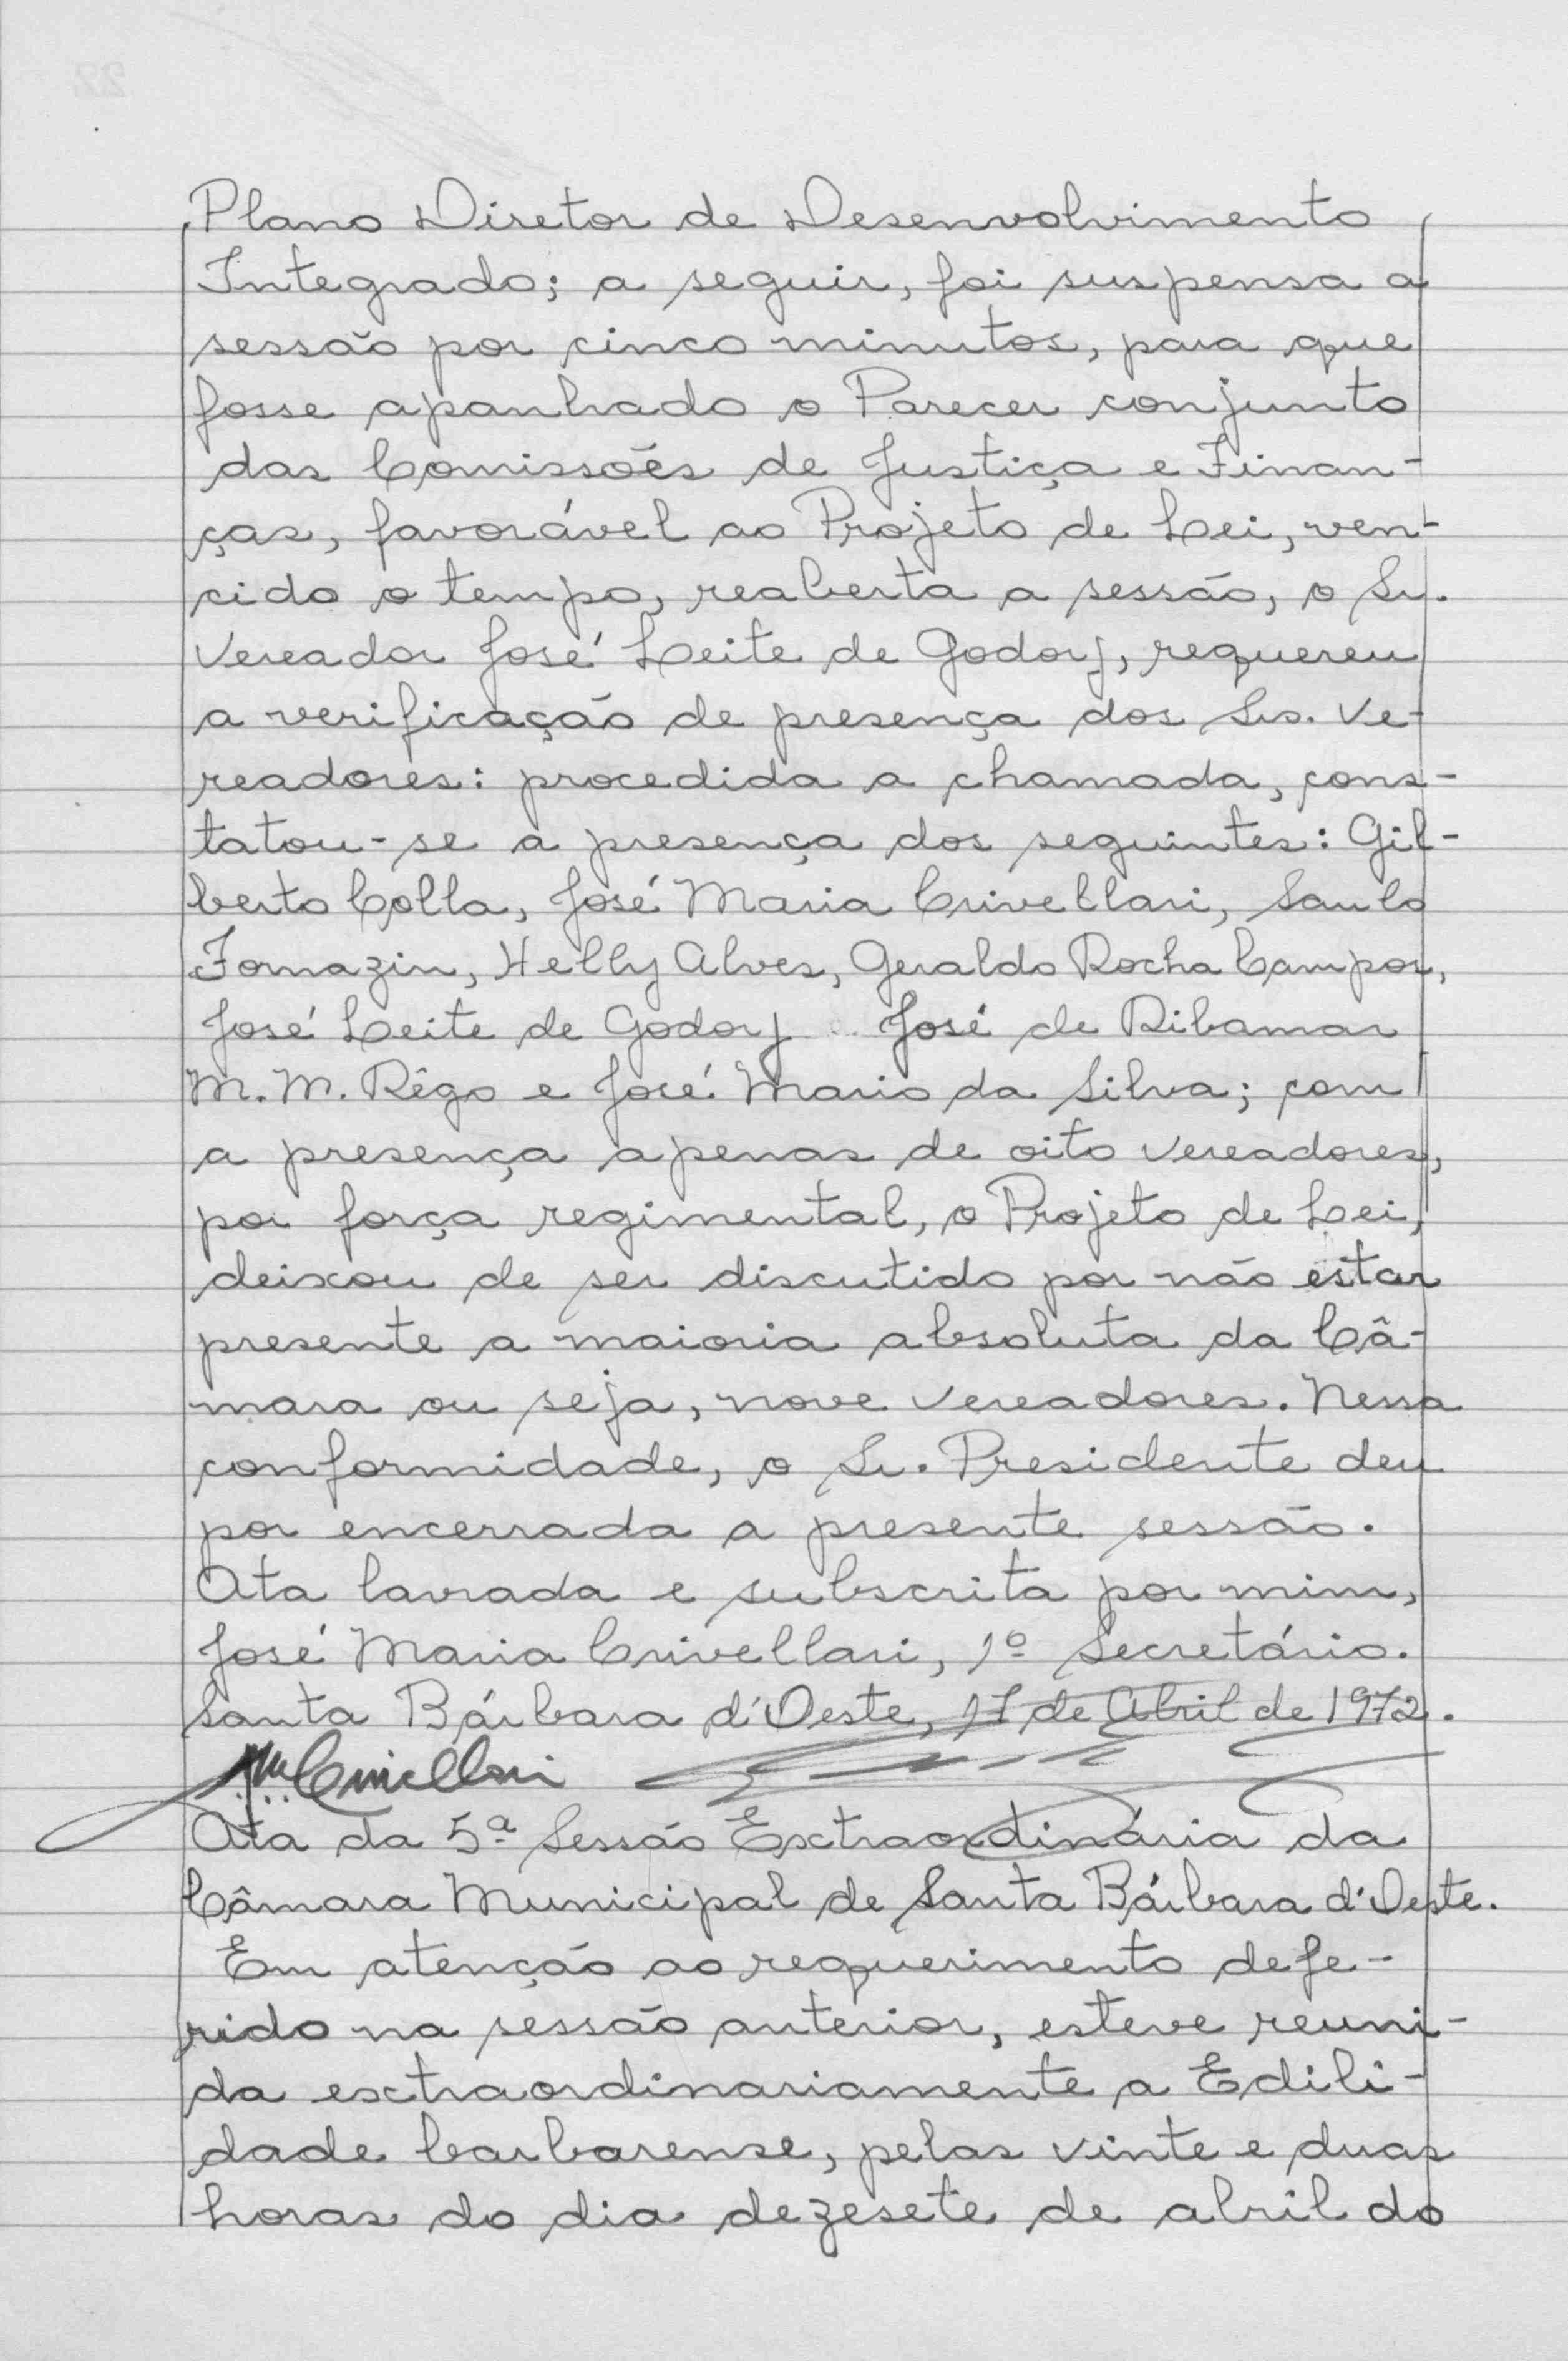 Plano Diretor de Desenvolvimento
Integrado; a seguir, foi suspensa a
sessão por cinco minutos, para que
fosse apanhado o Parecer conjunto
das Comissões de Justiça e Finan-
ças, favorável ao Projeto de Lei, ven-
cido o tempo, reaberta a sessão, o Sr.
Vereador José Leite de Godoy, requereu
a verificação de presença dos Srs. Ve-
readores: procedida a chamada, cons-
tatou-se a presença dos seguintes: Gil-
berto Colla, José Maria Crivellari, Saulo
Fornazin, Helly Alves, Geraldo Rocha Campos,
José Leite de Godoy José de Ribamar
M. M. Rêgo e José Mario da Silva; com
a presença apenas de oito vereadores,
por força regimental, o Projeto de Lei,
deixou de ser discutido por não estar
presente a maioria absoluta da Câ-
mara ou seja, nove vereadores. Nessa
conformidade, o Sr. Presidente deu
por encerrada a presente sessão.
Ata lavrada e subscrita por mim,
José Maria Crivellari, 1º Secretário.
Santa Bárbara d'Oeste, 17 de Abril de 1972.
Ata da 5ª Sessão Extraordinária da
Câmara Municipal de Santa Bárbara d'Oeste.
Em atenção ao requerimento defe-
rido na sessão anterior, esteve reuni-
da extraordinariamente a Edili-
dade barbarense, pelas vinte e duas
horas do dia dezesete de abril do